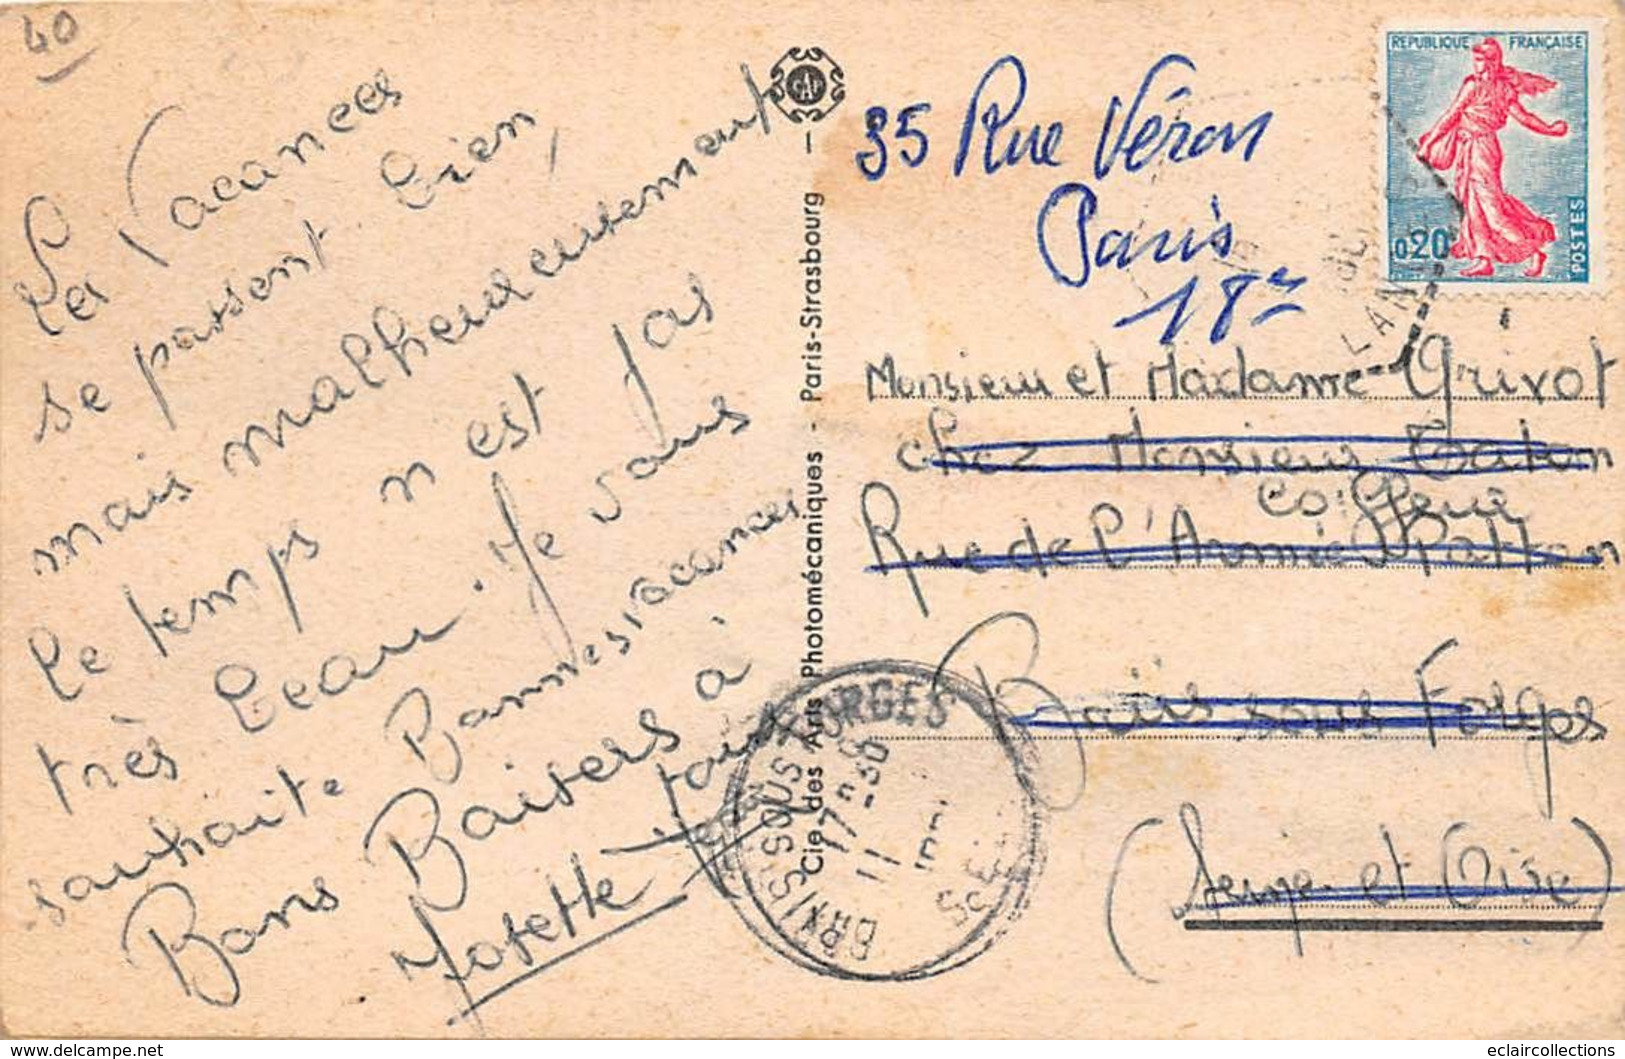 40
Les Vacances
se passent bien,
mais malheureusement
le temps n'est pas
très beau. Je vous
souhaite Bonnes vacances
Bons Baisers à
tous
Josette
GAI
Cie des Arts Photomécaniques - Paris-Strasbourg
35 Rue Véron
Paris
18e
REPUBLIQUE FRANÇAISE
0.20
POSTES
LAN
Monsieur et Madame Grivot
chez Monsieur Taton
Coiffeur
Rue de l'Armée Patton
Briis sous Forges
(Seine et Oise)
BRIIS SOUS FORGES
17H30
11
S.ET
eclaircollections.delcampe.net
eclaircollections